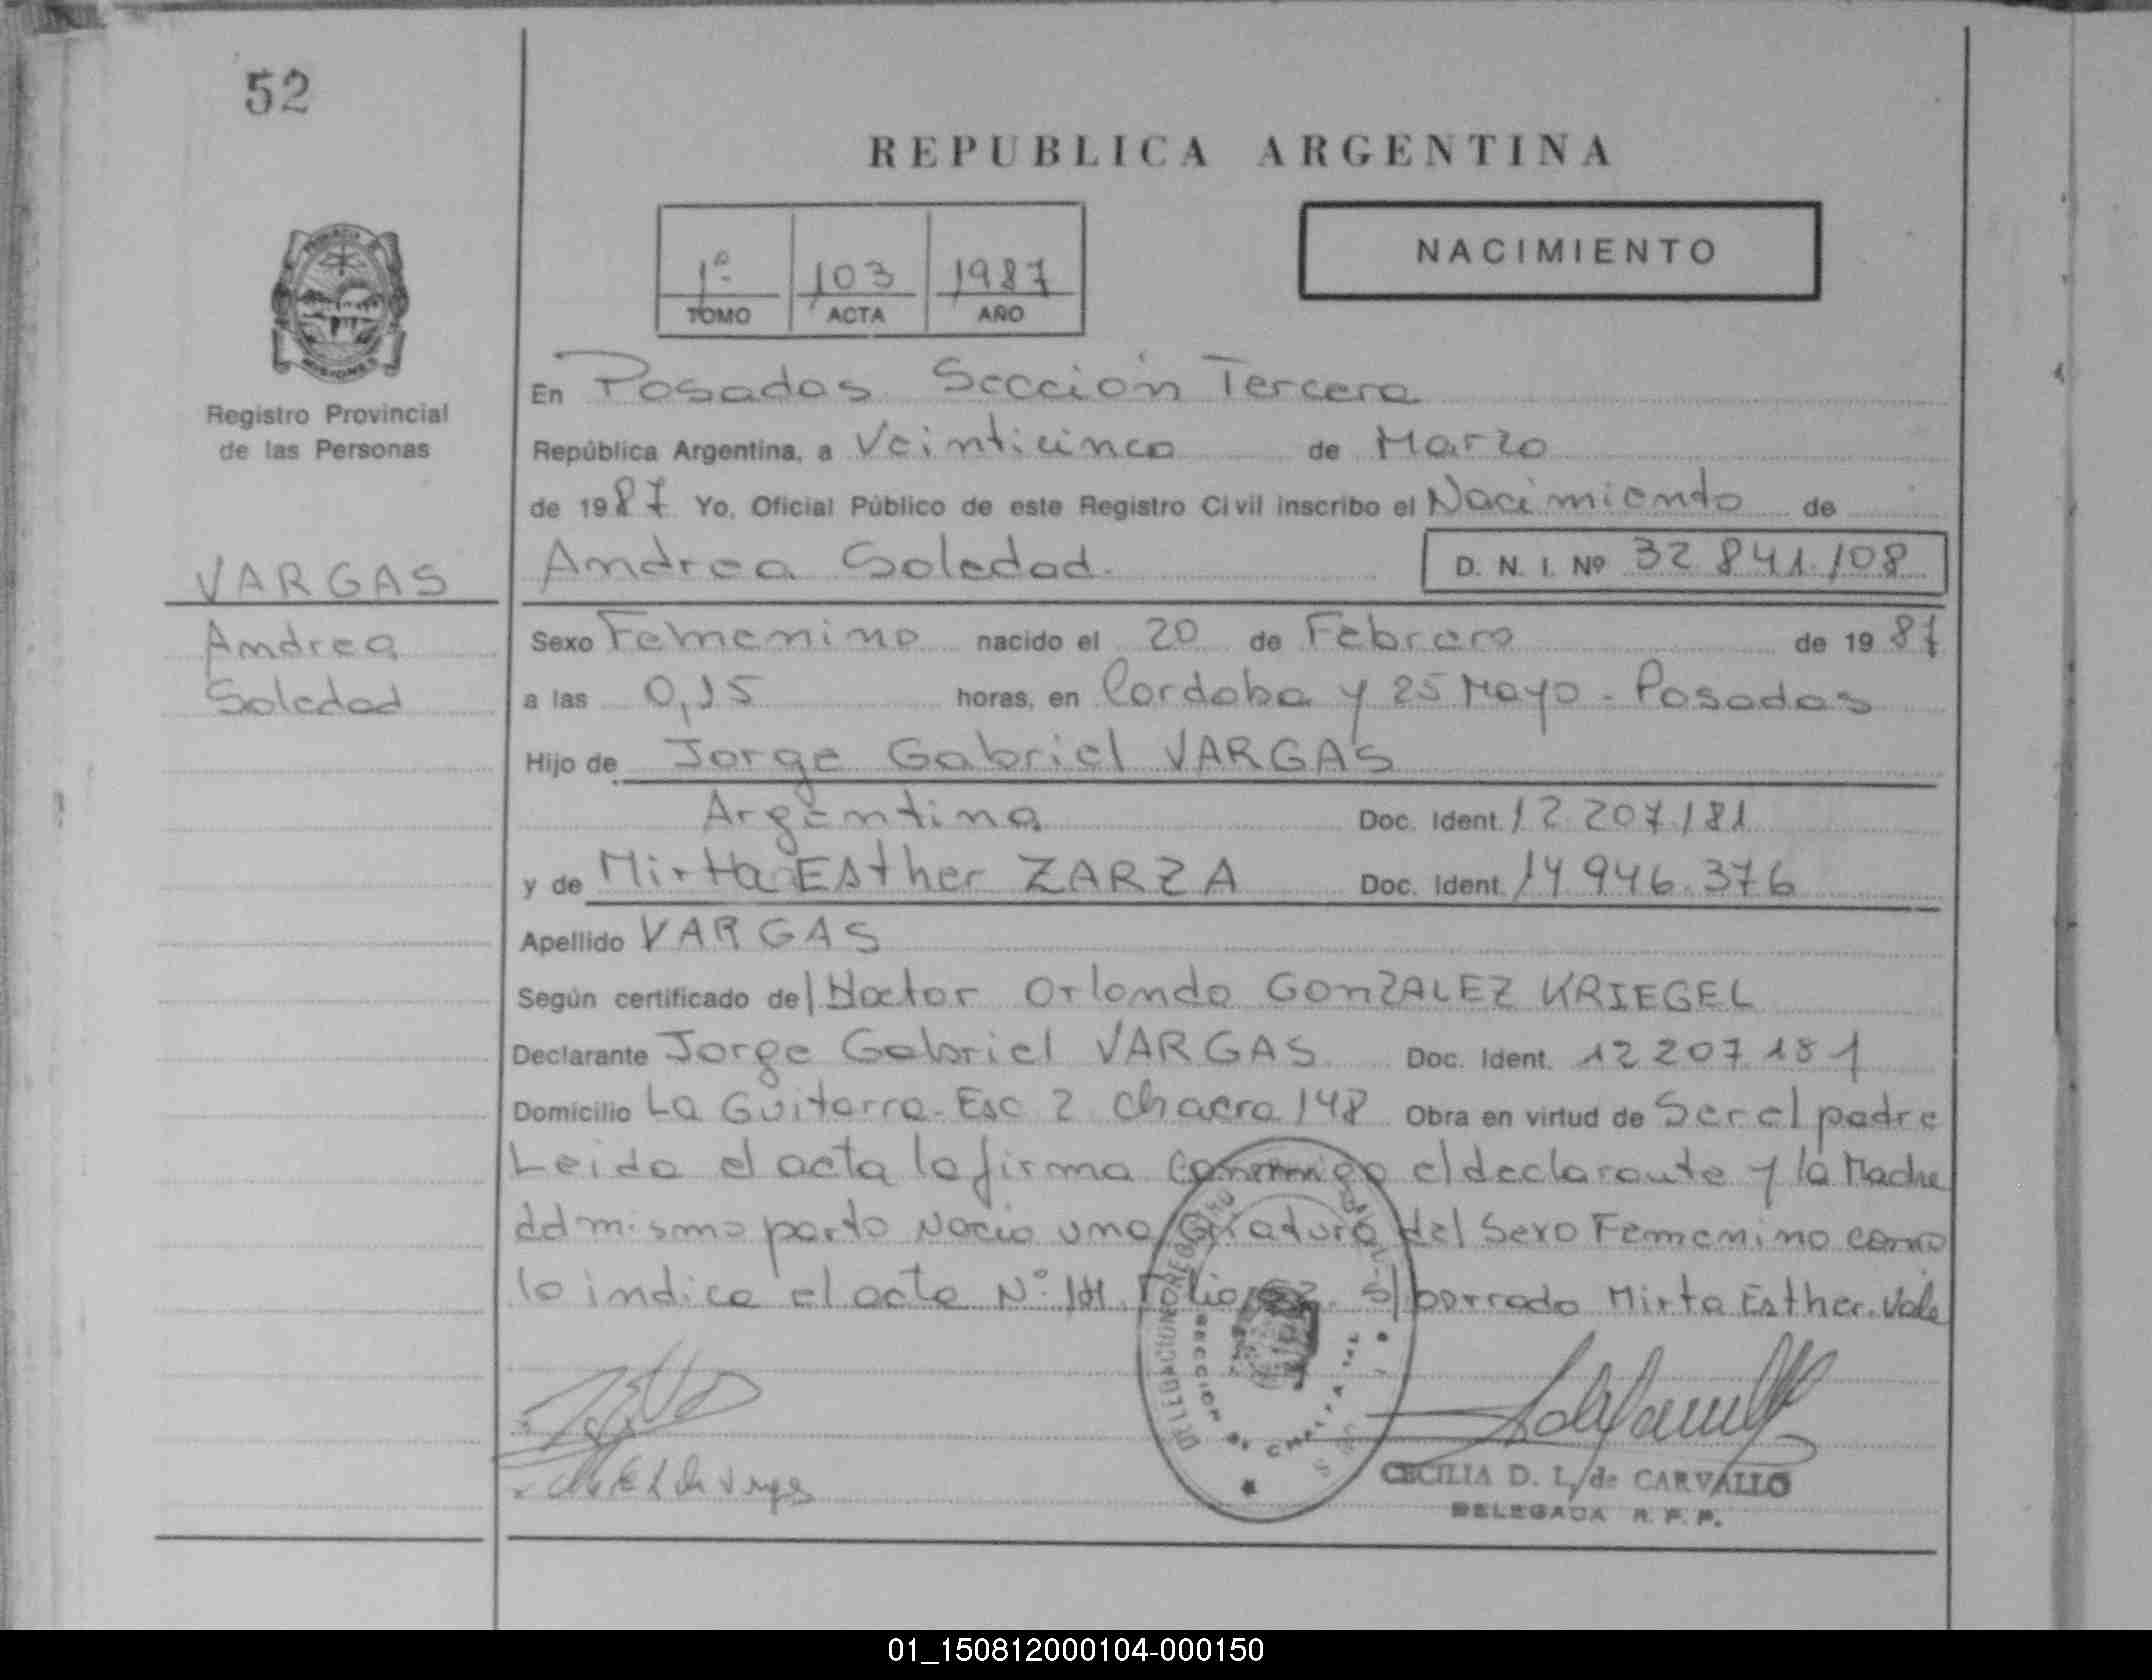 52
REPUBLICA ARGENTINA
NACIMIENTO
1º 103 1987
TOMO ACTA AÑO
Registro Provincial
de las Personas
En Posadas Sección Tercera
República Argentina, a Veinticinco de Marzo
de 1987 Yo, Oficial Público de este Registro Civil inscribo el Nacimiento de
VARGAS
Andrea Soledad. D. N. I. Nº 32 841.108
Andrea
Soledad
Sexo Femenino nacido el 20 de Febrero de 1987
a las 0,15 horas, en Cordoba y 25 Mayo - Posadas
Hijo de Jorge Gabriel VARGAS
Argentina Doc. Ident. 12 207.181
y de Mirta Esther ZARZA Doc. Ident. 14 946.376
Apellido VARGAS
Según certificado del Doctor Orlando GONZALEZ KRIEGEL
Declarante Jorge Gabriel VARGAS. Doc. Ident. 12 207.181
Domicilio La Guitarra - Esc 2 chacra 148 Obra en virtud de Ser el padre
Leida el acta la firma conmigo el declarante y la Madre
del mismo parto Nacio una Criatura del Sexo Femenino como
lo indica el acta Nº Folio S/borrado Mirta Esther. Vale
SECCION
CECILIA D. L. de CARVALLO
DELEGADA R. P. P.
01_150812000104-000150